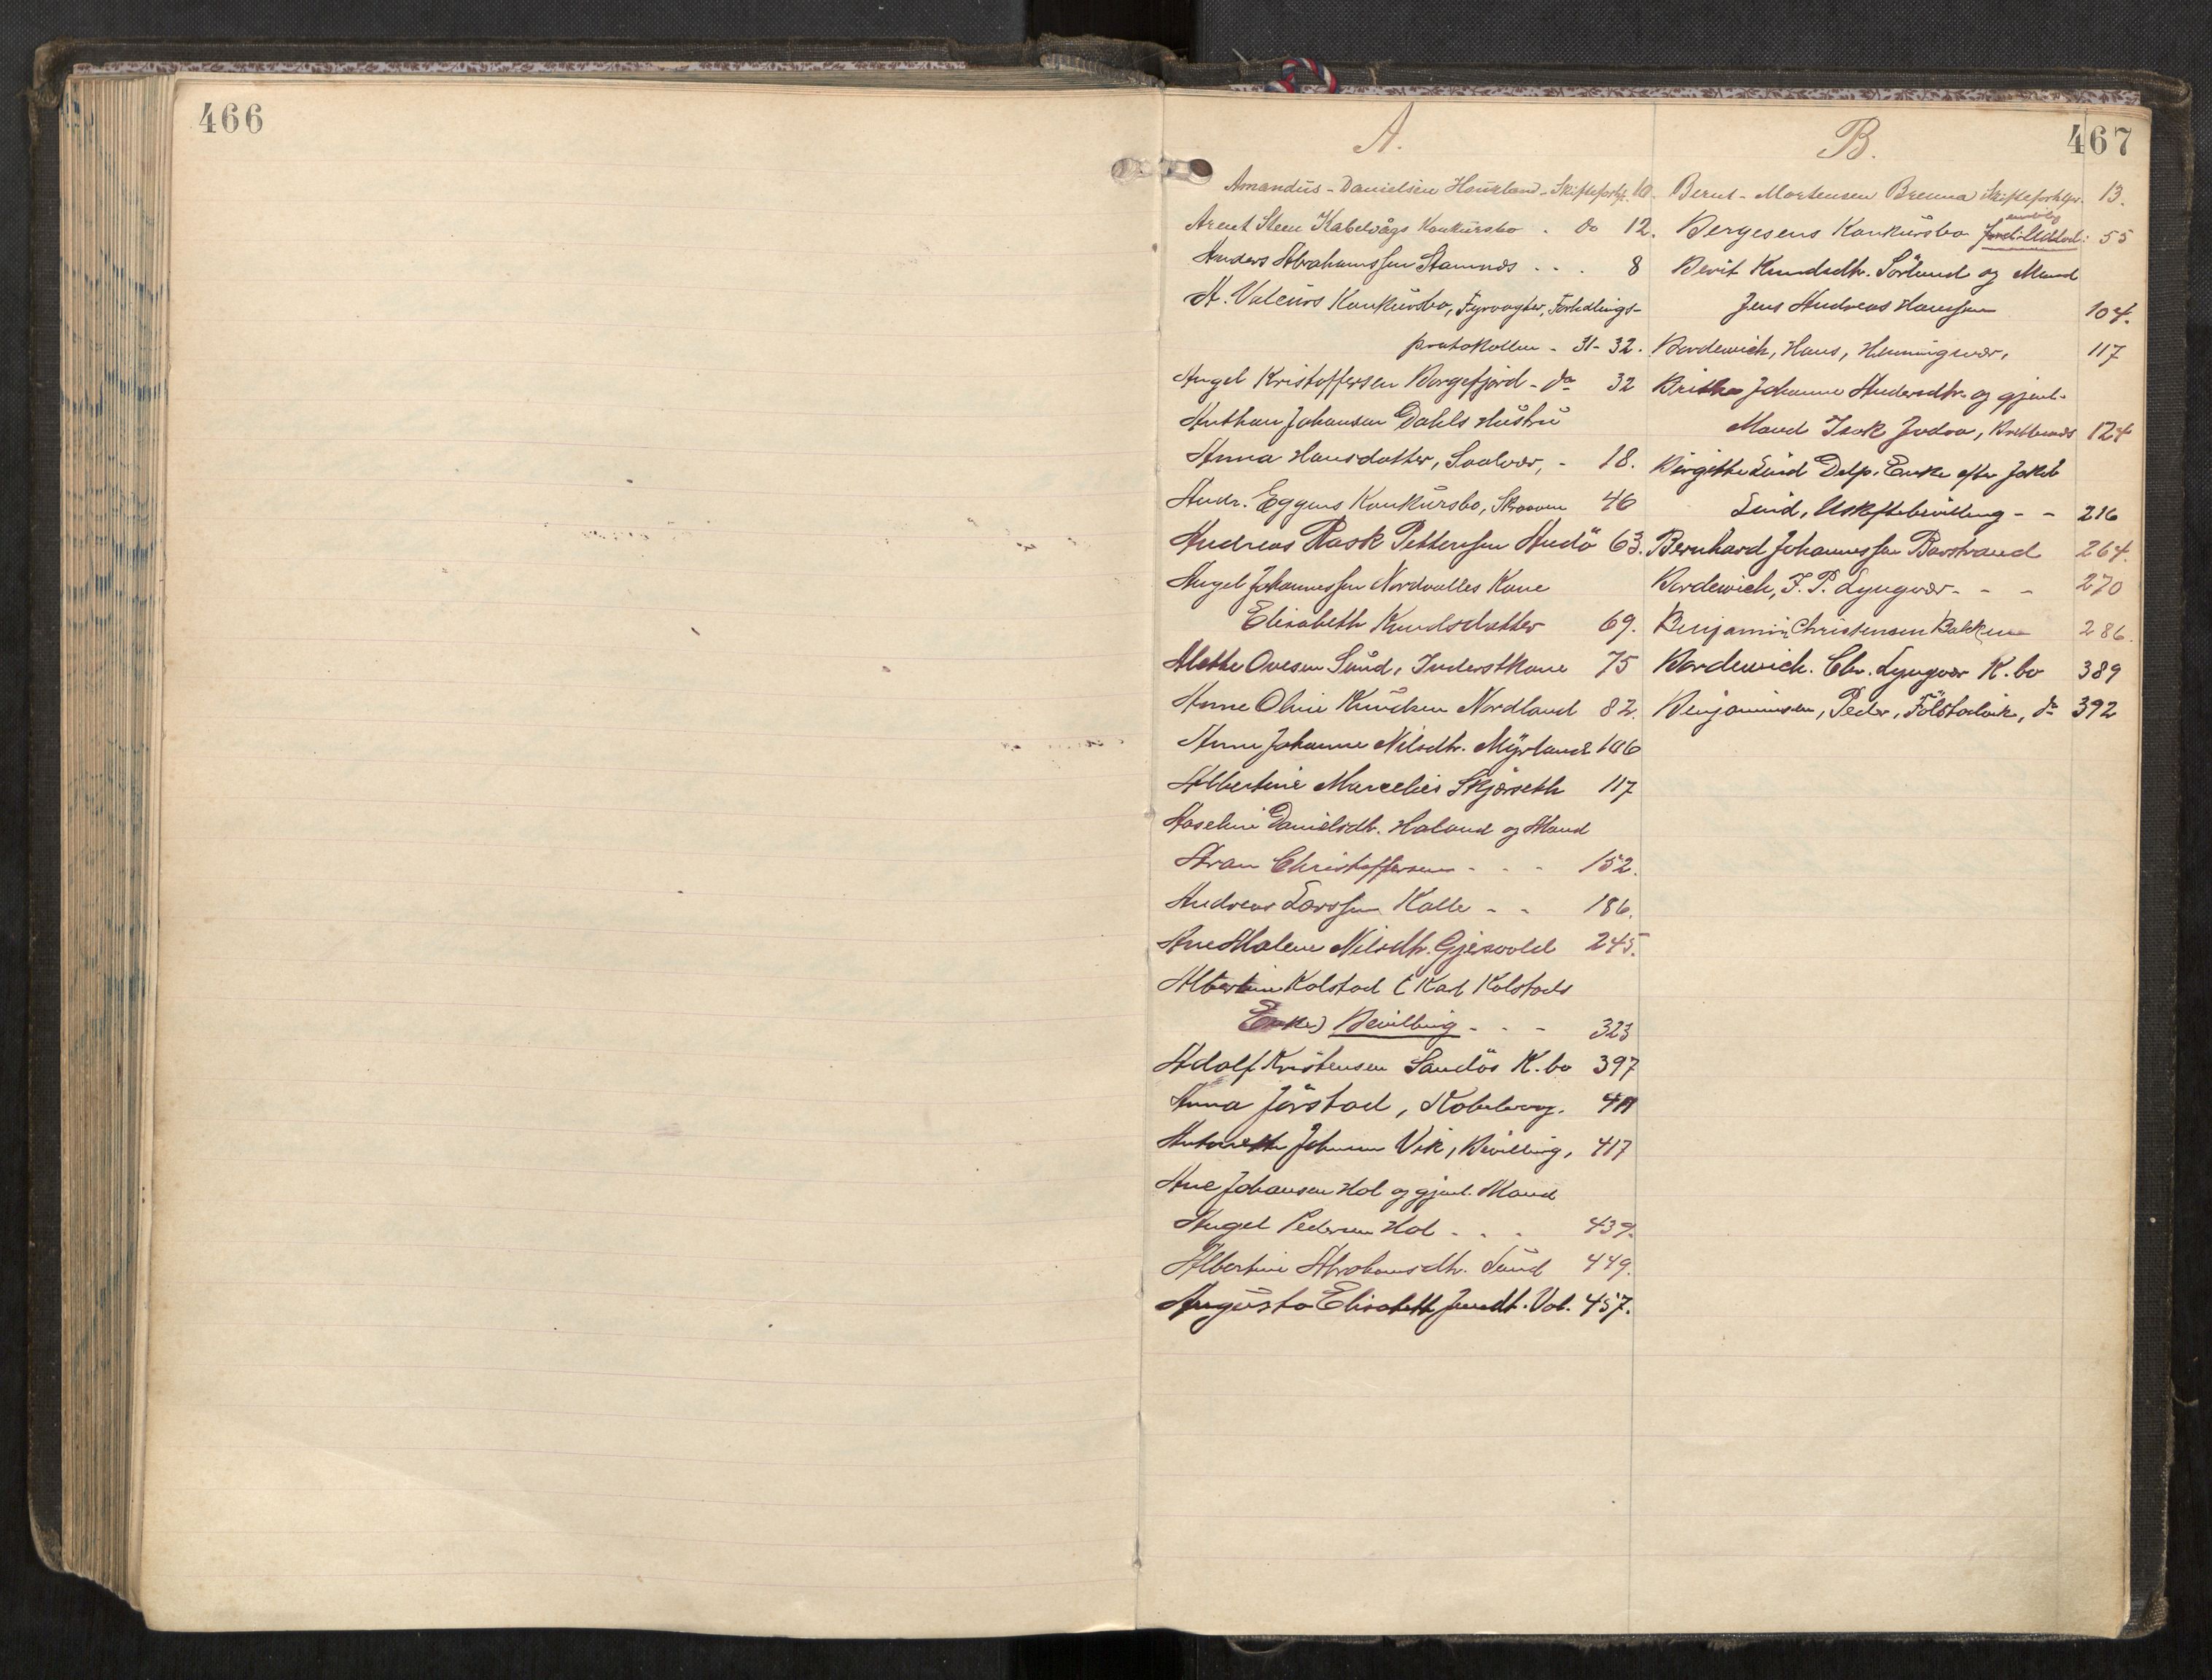 466
467
A.
Amandus - Danielsen Haukland - Skifteforhpr. 10.
Arent Steen Kabelvågs Konkursbo . do 12.
Anders Abrahamssen Stamnes . . . 8
A. Valeurs Konkursbo, Fyrvogter, Forhdlings-
protokollen - 31-32.
Angel Kristoffersen Borgefjord - do 32
Anthon Johansen Dahls Hustru
Anna Hansdatter, Svolvær, - 18.
Andr. Eggens Konkursbo, Skroven 46
Andreas Rask Pettersen Andö 63.
Angel Johannessen Nordvolles Kone
Elisabeth Knudsdatter 69.
Alette Ovesen Sund, Inderstkone 75
Anne Oline Knudsen Nordland 82.
Anne Johanne Nilsdtr. Myrland 106
Albertine Marcelies Skjærseth 117
Aaseline Danielsdt. Haland og Mand
Aron Christoffersen - - - 152.
Andreas Larssen Kalle - - 186.
Ane Malene Nilsdtr. Gjersvold 245.
Albertine Kolstad (Karl Kolstads
Enke) Bevilling - - - 323
Adolf Kristensen Sandös K.bo 397
Anna Jörstad, Kabelvog. 411
Antonette Johnsen Vik, Bevilling, 417
Ane Johansen Hol og gjenl. Mand
Angel Pedersen Hol - . . 439.
Albertine Abrahamsdtr. Sund 449.
Augusta Elisabeth Jensdt. Val. 457.
B.
Bernt - Mortensen Brenna Skifteforhlpr. 13.
Bergesens Konkursbo 55
Berit Knudsdtr. Sörlund og Mand
Jens Andreas Hansen 104.
Bordewich, Hans, Henningsvær, 117
Brithe Johanne Andersdtr. og gjenl.
Mand Isak 124
Birgitte Lind Delp. Enke efter Jakob
Lind, Uskiftebevilling - - 216
Bernhard Johannessen Barstrand 264.
Bordewich, F. P. Lyngvær - - - 270
Benjamin Christensen Bakken 286.
Bordewich. Chr. Lyngvær K.bo 389
Benjaminsen, Peder, Fölstadvik, do 392